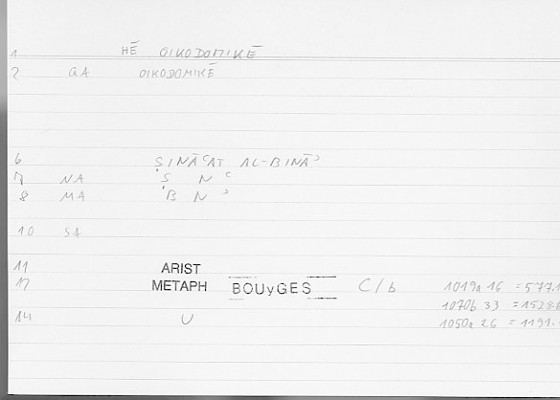 1 HĒ OIKODOMIKĒ
2 GA OIKODOMIKĒ
6 ṢINĀʿAT AL-BINĀʾ
7 NA Ṣ N ʿ
8 MA B N ʾ
10 SA
11 ARIST
12 METAPH BOUyGES C/b 1019a 16 = 577.1
1070b 33 = 1528.8
14 U 1050a 26 = 1191.